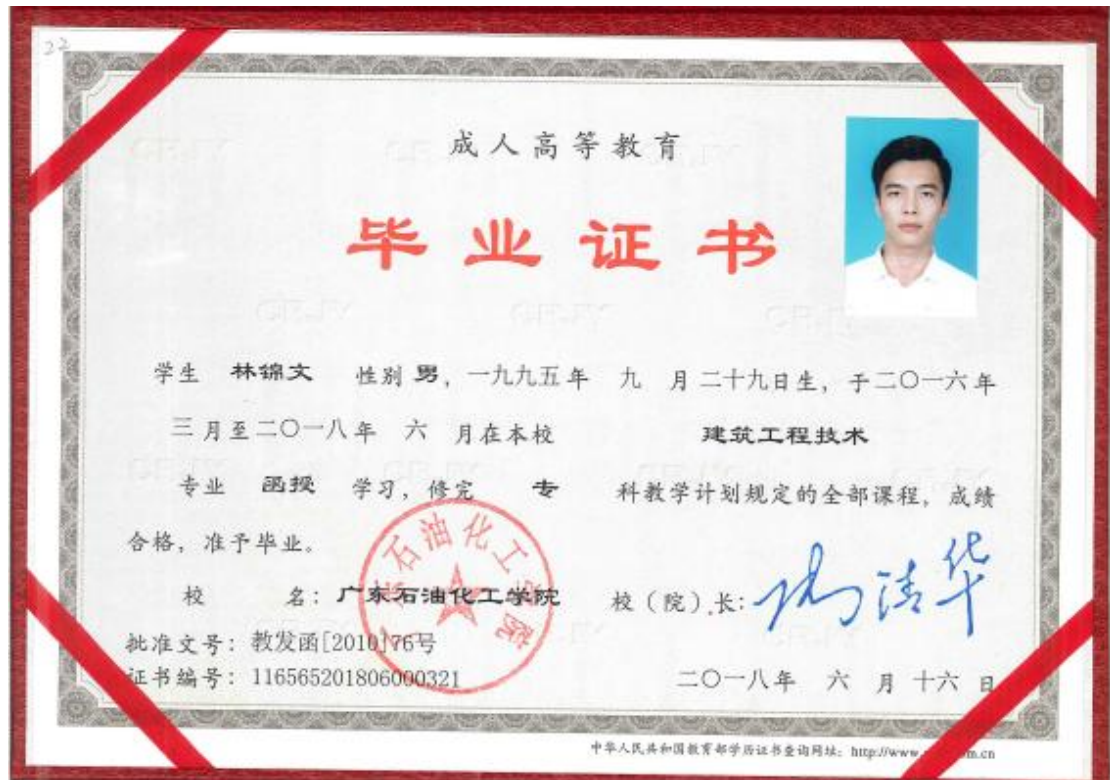 22
成人高等教育
毕业证书
学生 林锦文 性别 男，一九九五年 九 月二十九日生，于二〇一六年
三月至二〇一八年 六 月在本校 建筑工程技术
专业 函授 学习，修完 专 科教学计划规定的全部课程，成绩
合格，准予毕业。
校 名：广东石油化工学院 校（院）长：
批准文号：教发函[2010]76号
证书编号：116565201806000321
二〇一八年 六 月 十六 日
中华人民共和国教育部学历证书查询网址：http://www. m.cn